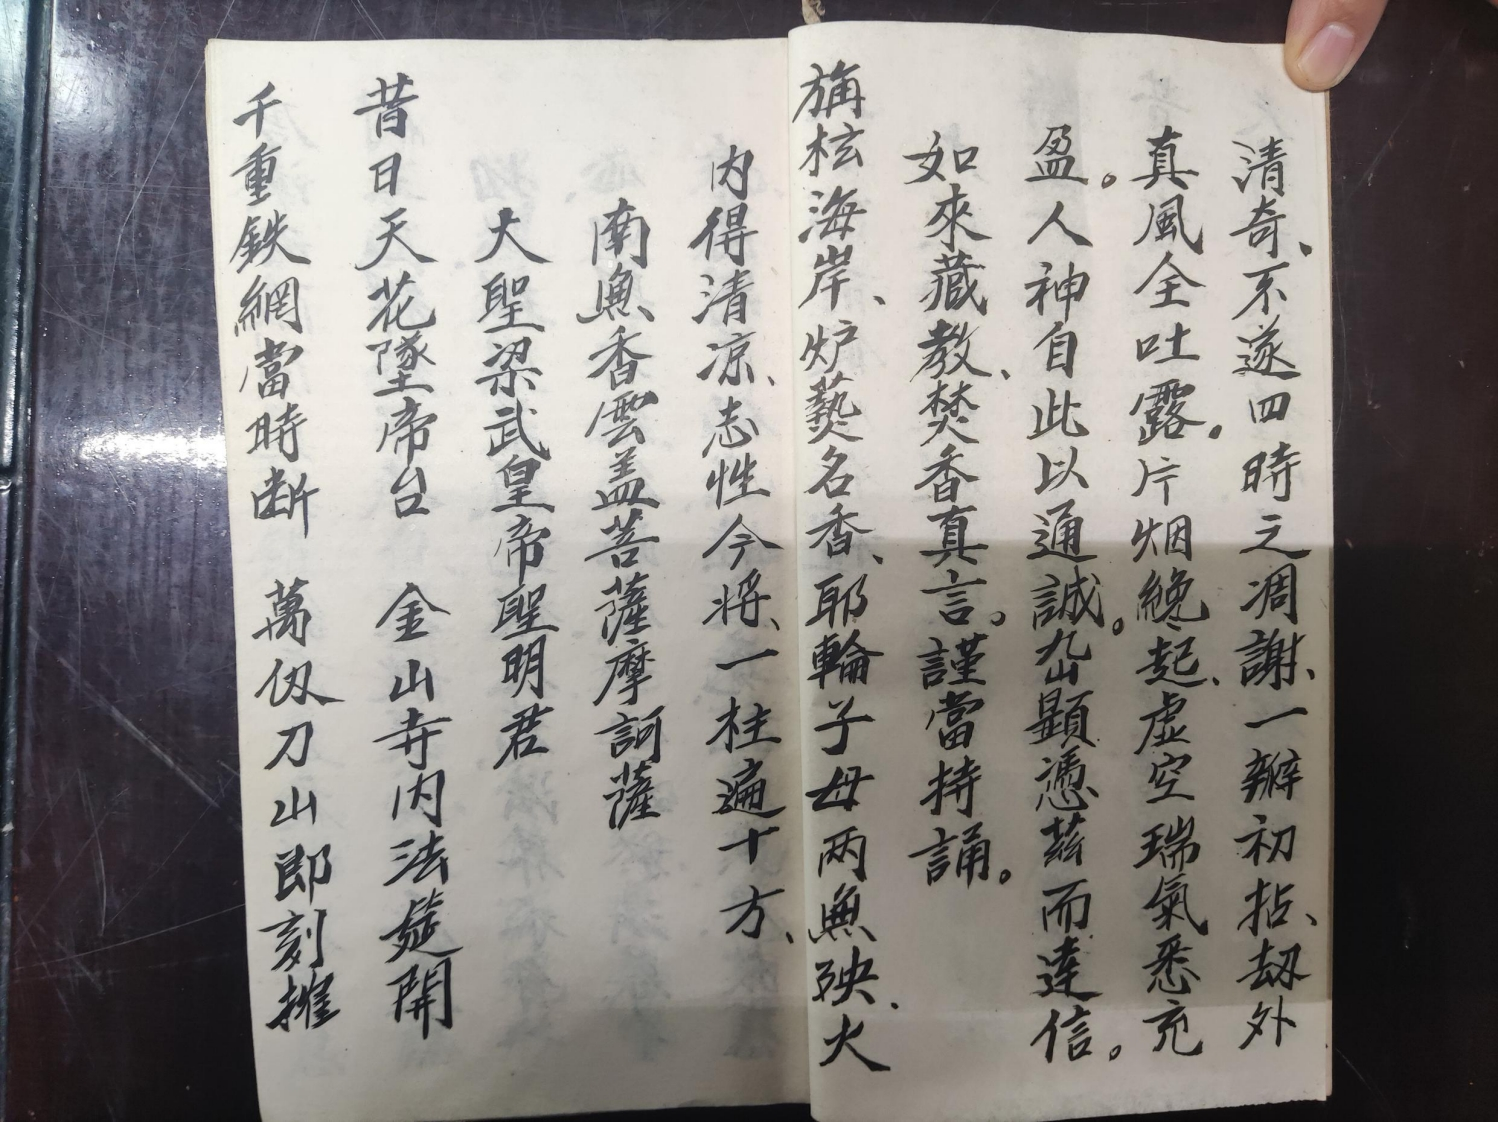 清奇、不遂四時之凋謝、一瓣初拈、刼外
真風全吐露。片烟纔起、虛空瑞氣悉充
盈。人神自此以通誠。凶顕憑茲而達信。
如來藏教、焚香真言。謹當持誦。
旃枟海岸、炉爇名香、耶輪子母兩無殃、火
内得清凉、志性今将、一柱遍十方、
南無香雲盖菩薩摩訶薩
大聖梁武皇帝聖明君
昔日天花墜帝台 金山寺内法筵開
千重鉄網當時断 萬仭刀山即刻摧